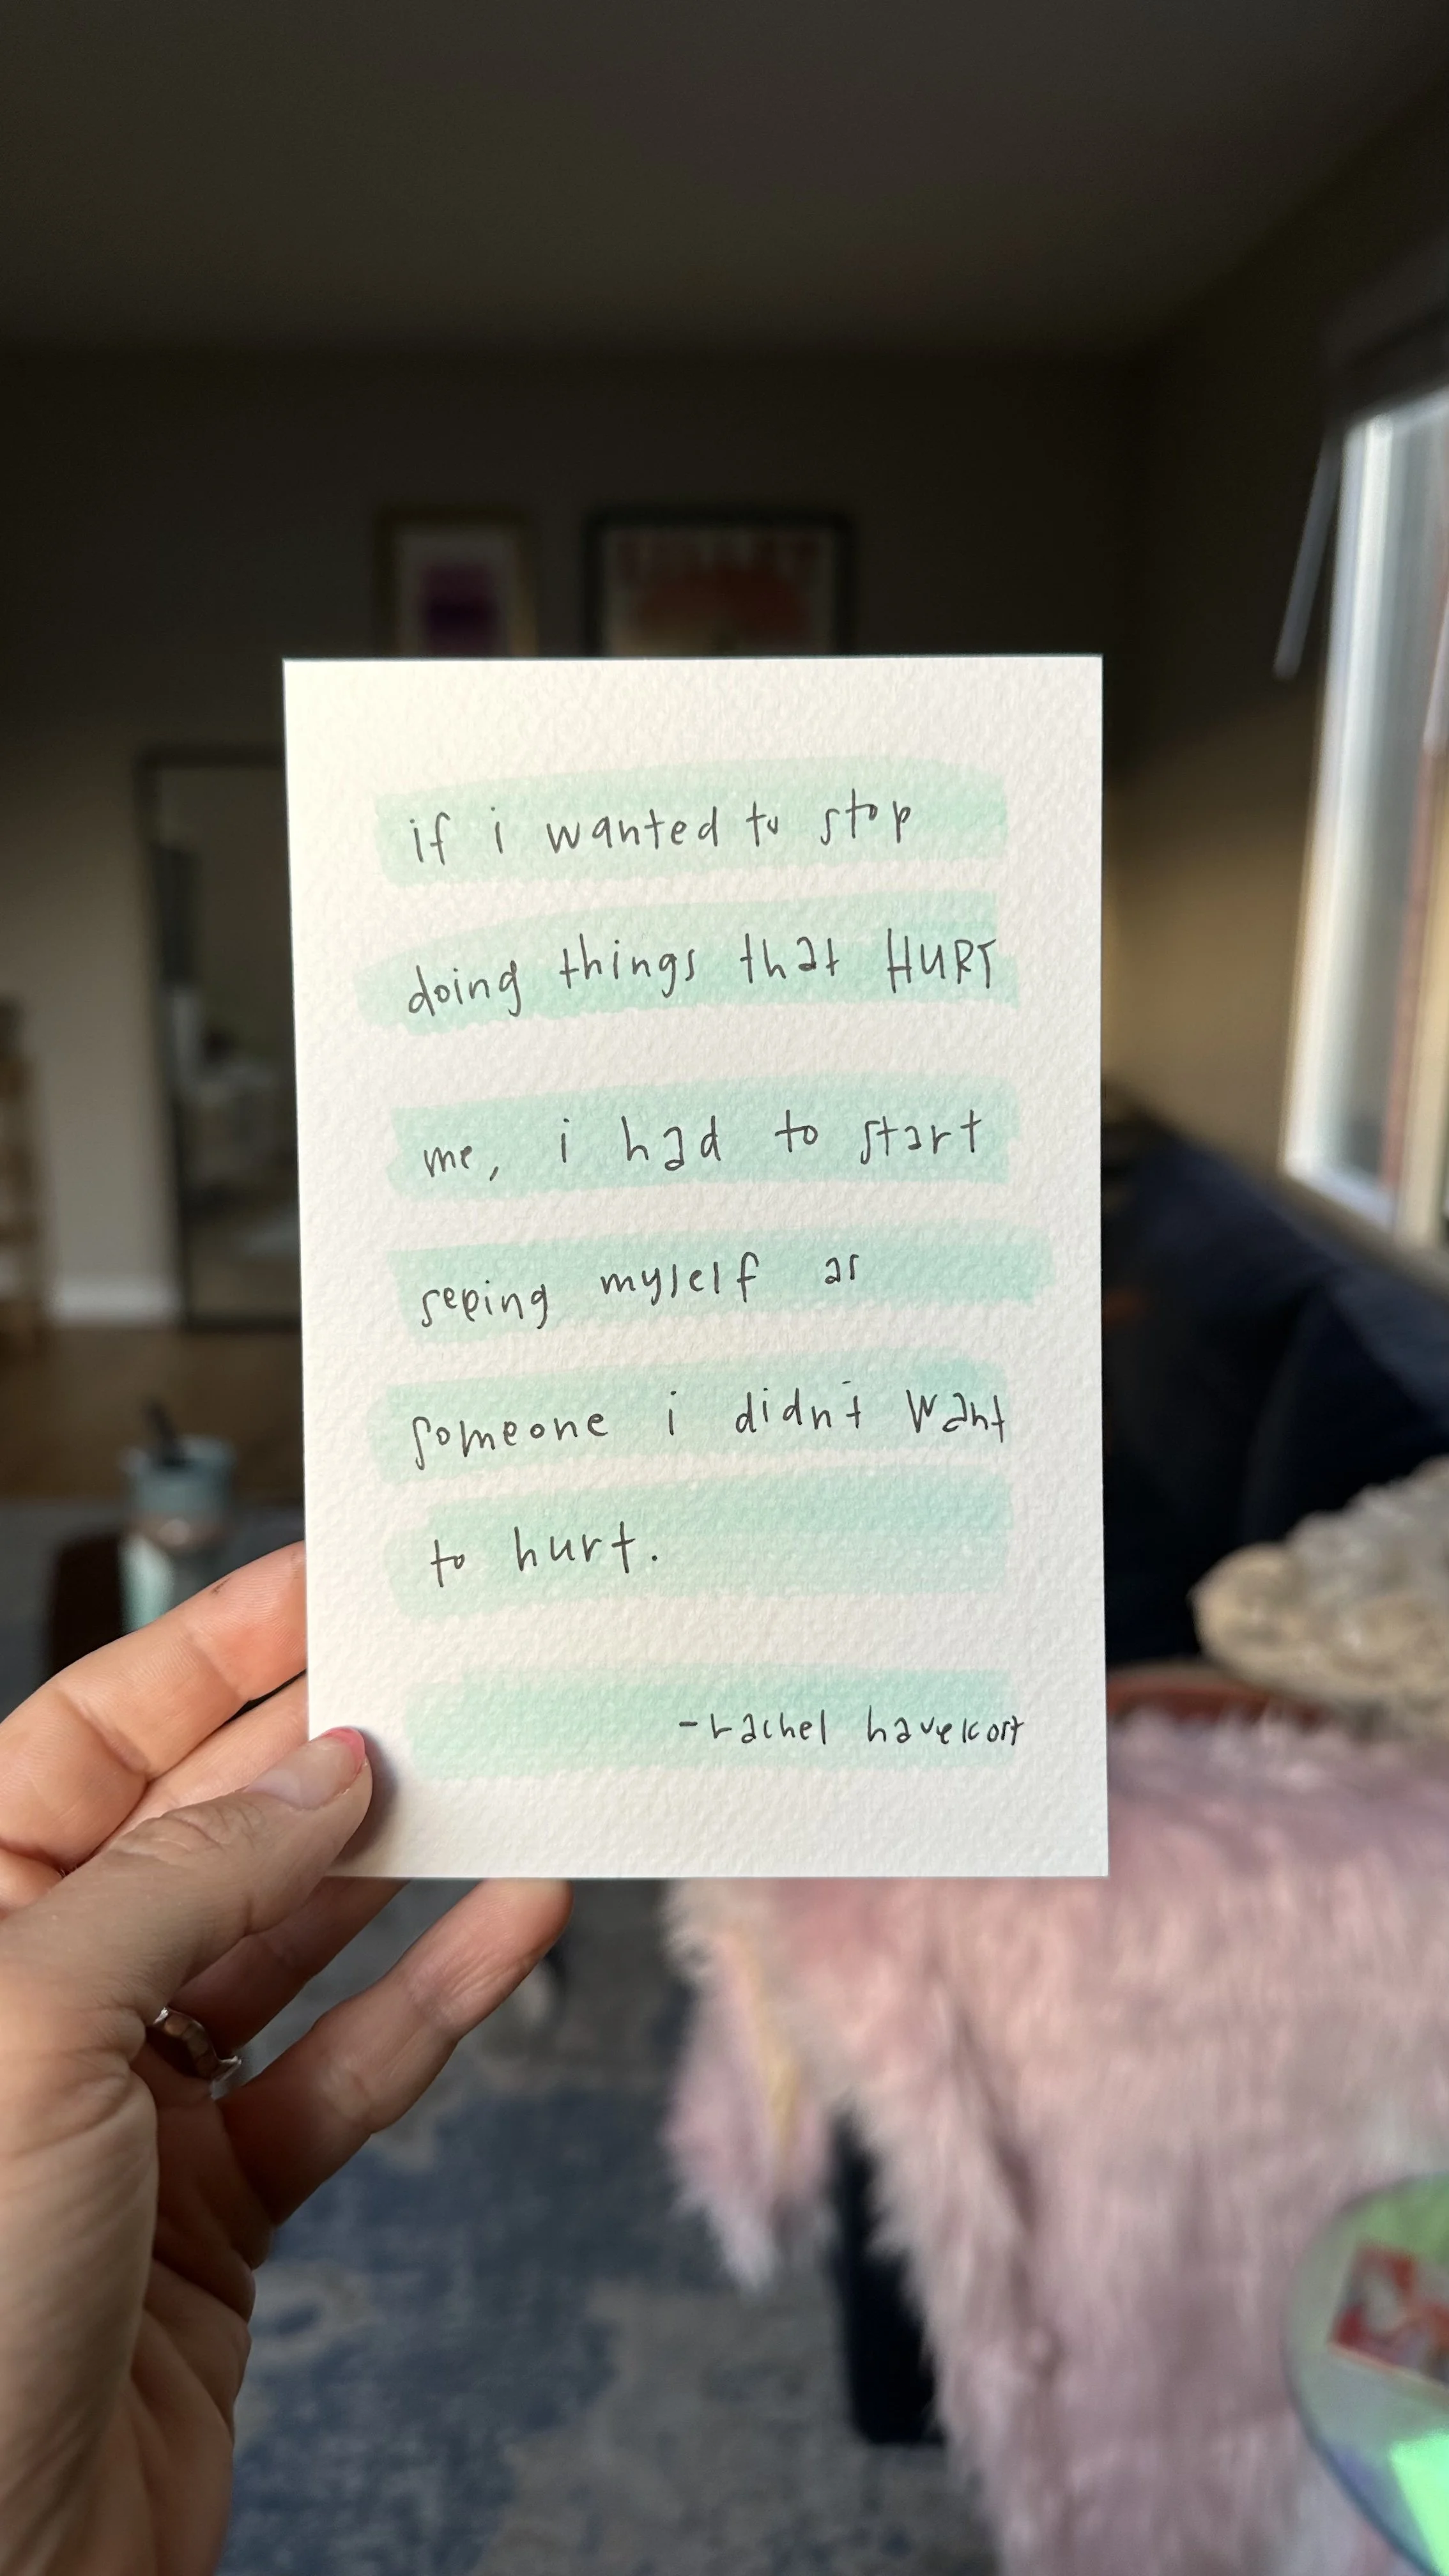 if i wanted to stop
doing things that HURT
me, i had to start
seeing myself as
someone i didn't want
to hurt.
-rachel havekost